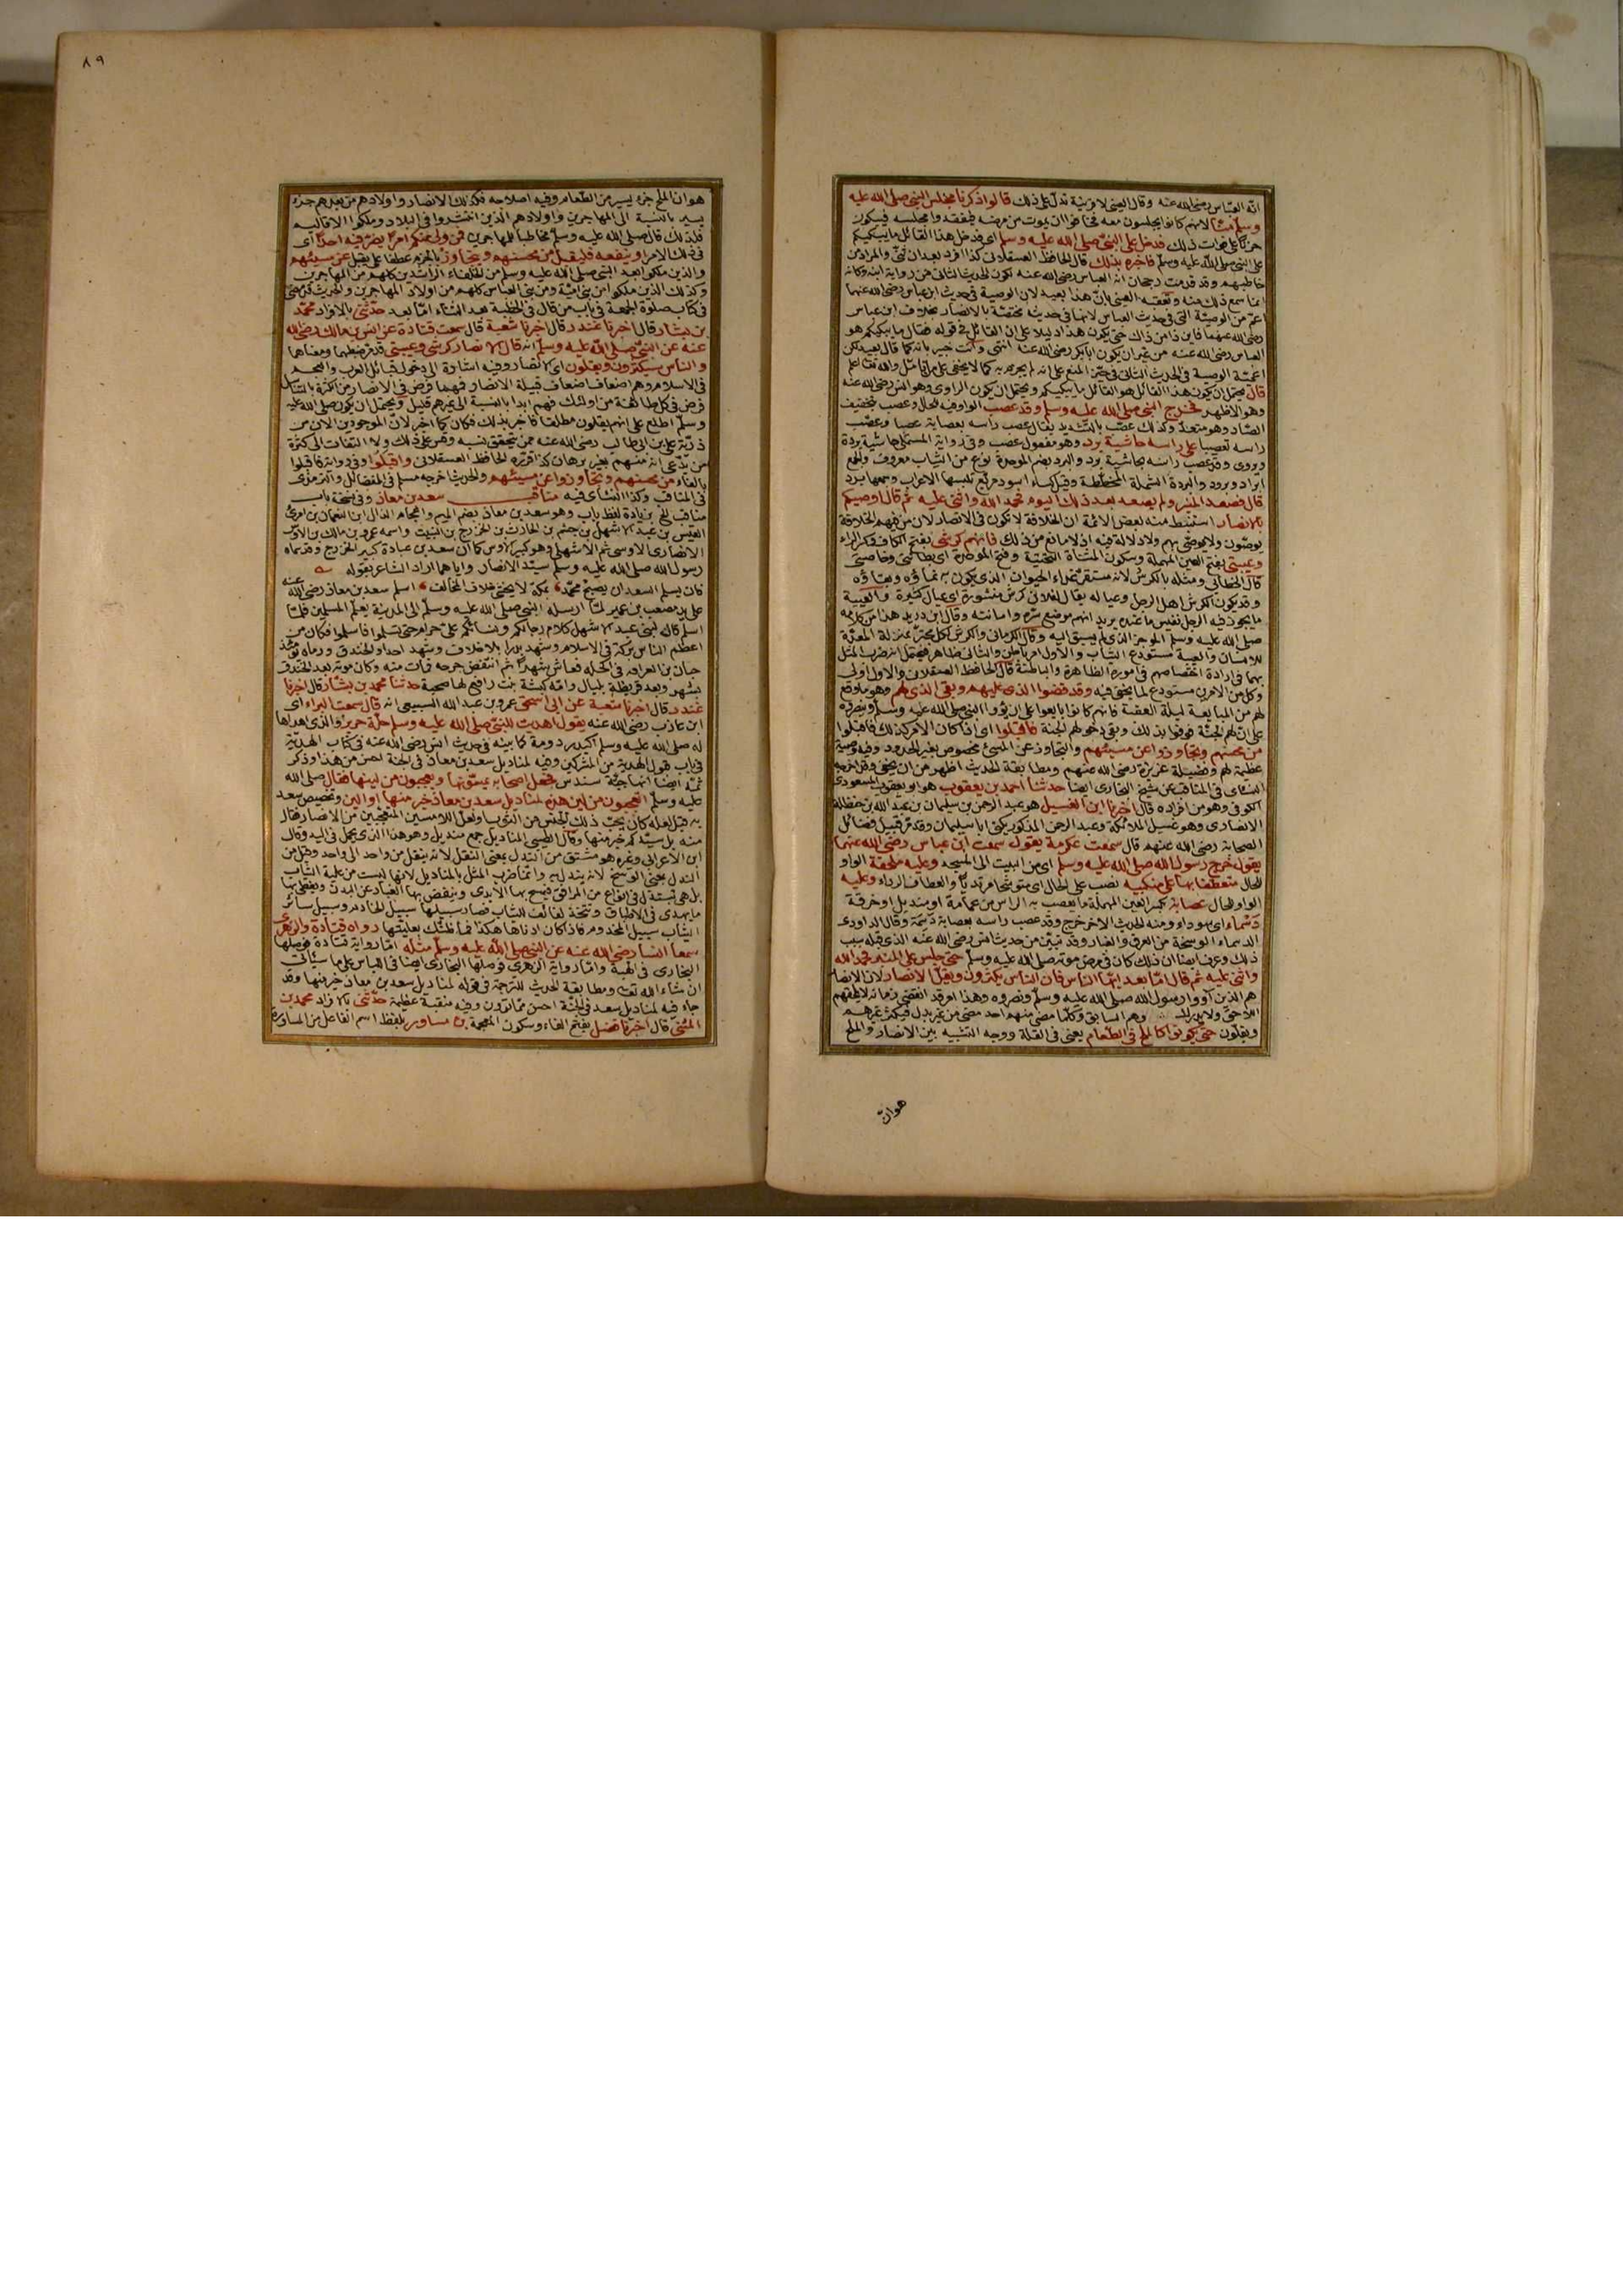 انه العباس رضي الله عنه وقال العيني لا قرينة تدل على ذلك قالوا ذكرنا مجلس النبي صلى الله عليه
وسلم منا لانهم كانوا يجلسون معه فخافوا ان يموت من مرضه فيفقدوا مجلسه فيكون
حزنا على فوات ذلك فدخل على النبي صلى الله عليه وسلم اي فدخل هذا القائل ما يبكيكم
على النبي صلى الله عليه وسلم فاخبره بذلك قال الحافظ العسقلاني كذا افرد بعد ان ثنى والمراد من
خاطبهم وقد قدمت رجحان انه العباس رضي الله عنه لكون الحديث الثاني من رواية ابنه وكانه
انما سمع ذلك منه وتعقبه العيني بان هذا بعيد لان الوصية في حديث ابن عباس رضي الله عنهما
اعم من الوصية التي في حديث العباس لانها في حديث مختصة بالانصار بخلاف ابن عباس
رضي الله عنهما فاين ذا من ذاك حتى يكون هذا دليلا على ان القائل في قوله فقال ما يبكيكم هو
العباس رضي الله عنه من غير ان يكون ابا بكر رضي الله عنه انتهى وانت خبير بانه كما قال بعيد لكن
اعمية الوصية في الحديث الثاني في حيز المنع على انه لم يجزم به كما لا يخفى على من تأمل والله تعالى اعلم
قال يحتمل ان يكون هذا القائل هو القائل ما يبكيكم ويحتمل ان يكون الراوي وهو انس رضي الله عنه
وهو الاظهر فخرج النبي صلى الله عليه وسلم وقد عصب الواو فيه للحال وعصب بتخفيف
الصاد وهو متعد وكذلك عصب بالتشديد يقال عصب راسه بعصابة عصبا وعصب
راسه تعصيبا على راسه حاشية برد وهو مفعول عصب وفي رواية المستملي حاشية بردة
ويروى وقد عصب راسه بحاشية برد والبرد بضم الموحدة نوع من الثياب معروف والجمع
ابراد وبرود والبردة الشملة المخططة وقيل كساء اسود مربع تلبسها الاعراب وجمعها برد
قال فصعد المنبر ولم يصعد بعد ذلك اليوم فحمد الله واثنى عليه ثم قال اوصيكم
بالانصار استنبط منه بعض الائمة ان الخلافة لا تكون في الانصار لان من فيهم الخلافة
يوصون ولا يوصى بهم ولا دلالة فيه اذ لا مانع من ذلك فانهم كرشي بفتح الكاف وكسر الراء
وعيبتي بفتح العين المهملة وسكون المثناة التحتية وفتح الموحدة اي بطانتي وخاصتي
قال الخطابي ومثله بالكرش لانه مستقر غذاء الحيوان الذي يكون به نماؤه وبقاؤه
وقد يكون الكرش اهل الرجل وعياله يقال لفلان كرش منثورة اي عيال كثيرة والعيبة
ما يحوز فيه الرجل نفيس ما عنده يريد انهم موضع سره وامانته وقال ابن دريد هذا من كلامه
صلى الله عليه وسلم الموجز الذي لم يسبق اليه وقال الكرماني والكرش لكل مجتر بمنزلة المعدة
للانسان والعيبة مستودع الثياب والاول امر باطن والثاني ظاهر فيحتمل انه ضرب المثل
بهما في ارادة اختصاصهم في اموره الظاهرة والباطنة قال الحافظ العسقلاني والاول اولى
وكل من الامرين مستودع لما يخفى فيه وقد قضوا الذي عليهم وبقي الذي لهم وهو ما وقع
لهم من المبايعة ليلة العقبة فانهم كانوا بايعوا على ان يؤووا النبي صلى الله عليه وسلم وينصروه
على ان لهم الجنة فوفوا بذلك وبقي دخولهم الجنة فاقبلوا اي اذا كان الامر كذلك فاقبلوا
من محسنهم وتجاوزوا عن مسيئهم والتجاوز عن المسئ مخصوص بغير الحدود وفيه وصية
عظيمة لهم وفضيلة عزيزة رضي الله عنهم ومطابقة الحديث اظهر من ان يخفى وقد اخرجه
النسائي في المناقب عن شيخ البخاري ايضا حدثنا احمد بن يعقوب هو ابو يعقوب المسعودي
الكوفي وهو من افراده قال اخبرنا ابن الغسيل هو عبد الرحمن بن سليمان بن عبد الله بن حنظلة
الانصاري وهو غسيل الملائكة وعبد الرحمن المذكور يكنى ابا سليمان وقد مر قبيل فضائل
الصحابة رضي الله عنهم قال سمعت عكرمة يقول سمعت ابن عباس رضي الله عنهما
يقول خرج رسول الله صلى الله عليه وسلم اي من البيت الى المسجد وعليه ملحفة الواو
للحال متعطفا بها على منكبيه نصب على الحال اي متوشحا مرتديا والعطاف الرداء وعليه
الواو للحال عصابة بكسر العين المهملة ما يعصب به الراس من عمامة او منديل او خرقة
دسماء اي سوداء ومنه الحديث الاخر خرج وقد عصب راسه بعصابة دسمة وقال الداودي
الدسماء الوسخة من العرق والغبار وقد تبين من حديث انس رضي الله عنه الذي قبله سبب
ذلك وعرف ايضا ان ذلك كان في مرض موته صلى الله عليه وسلم حتى جلس على المنبر فحمد الله
واثنى عليه ثم قال اما بعد ايها الناس فان الناس يكثرون ويقل الانصار لان الانصار
هم الذين آووا رسول الله صلى الله عليه وسلم ونصروه وهذا امر قد انقضى زمانه لا يلحقهم
اللاحق ولا يدرك وهم السابق وكلما مضى منهم احد مضى من غير بدل فيكثر غيرهم
ويقلون حتى يكونوا كالملح في الطعام يعني في القلة ووجه التشبيه بين الانصار والملح
هوان
٨٩
هوان الملح جزء يسير من الطعام وفيه اصلاحه فكذلك الانصار واولادهم من بعدهم جزء
يسير بالنسبة الى المهاجرين واولادهم الذين انتشروا في البلاد وملكوا الاقاليم
فلذلك قال صلى الله عليه وسلم مخاطبا للمهاجرين فمن ولي منكم امرا يضر فيه احدا اي
في ذلك الامر او ينفعه فليقبل من محسنهم ويتجاوز بالجزم عطفا على يقبل عن مسيئهم
والذين ملكوا بعد النبي صلى الله عليه وسلم من الخلفاء الراشدين كلهم من المهاجرين
وكذلك الذين ملكوا من بني امية ومن بني العباس كلهم من اولاد المهاجرين والحديث قد مضى
في كتاب صلوة الجمعة في باب من قال في الخطبة بعد الثناء اما بعد حدثني بالافراد محمد
بن بشار قال اخبرنا غندر قال اخبرنا شعبة قال سمعت قتادة عن انس بن مالك رضي الله
عنه عن النبي صلى الله عليه وسلم انه قال الانصار كرشي وعيبتي قد مر ضبطهما ومعناهما
والناس سيكثرون ويقلون اي الانصار وفيه اشارة الى دخول قبائل العرب والعجم
في الاسلام وهم اضعاف اضعاف قبيلة الانصار فمهما فرض في الانصار من الكثرة بالتناسل
فرض في كل طائفة من اولئك فهم ابدا بالنسبة الى غيرهم قليل ويحتمل ان يكون صلى الله عليه
وسلم اطلع على انهم يقلون مطلقا فاخبر بذلك فكان كما اخبر لان الموجودين الان من
ذرية علي بن ابي طالب رضي الله عنه ممن يتحقق نسبه وقس على ذلك ولا التفات الى كثرة
من يدعي انه منهم بغير برهان كذا قرره الحافظ العسقلاني واقبلوا وفي رواية فاقبلوا
بالفاء من محسنهم وتجاوزوا عن مسيئهم والحديث اخرجه مسلم في الفضائل والترمذي
في المناقب وكذا النسائي فيه مناقب سعد بن معاذ وفي نسخة باب
مناقب الخ بزيادة لفظ باب وهو سعد بن معاذ بضم الميم واعجام الذال ابن النعمان بن امرئ
القيس بن عبد الاشهل بن جشم بن الحارث بن الخزرج بن النبيت واسمه عمرو بن مالك بن الاوس
الانصاري الاوسي ثم الاشهلي وهو كبير الاوس كما ان سعد بن عبادة كبير الخزرج وقد سماه
رسول الله صلى الله عليه وسلم سيد الانصار واياهما اراد الشاعر بقوله
فان يسلم السعدان يصبح محمد بمكة لا يخشى خلاف المخالف اسلم سعد بن معاذ رضي الله عنه
على يد مصعب بن عمير لما ارسله النبي صلى الله عليه وسلم الى المدينة يعلم المسلمين فلما
اسلم قال لبني عبد الاشهل كلام رجالكم ونسائكم علي حرام حتى تسلموا فاسلموا فكان من
اعظم الناس بركة في الاسلام وشهد بدرا بلا خلاف وشهد احدا والخندق ورماه يومئذ
حبان بن العرقة في اكحله فعاش شهرا ثم انتقض جرحه فمات منه وكان موته بعد الخندق
بشهر وبعد قريظة بليال وامه كبشة بنت رافع لها صحبة حدثنا محمد بن بشار قال اخبرنا
غندر قال اخبرنا شعبة عن ابي اسحق عمرو بن عبد الله السبيعي انه قال سمعت البراء اي
ابن عازب رضي الله عنه يقول اهديت للنبي صلى الله عليه وسلم حلة حرير والذي اهداها
له صلى الله عليه وسلم اكيدر دومة كما بينه في حديث انس رضي الله عنه في كتاب الهدية
في باب قبول الهدية من المشركين وفيه لمناديل سعد بن معاذ في الجنة احسن من هذا وذكر
ثمة ايضا انها جبة سندس فجعل اصحابه يمسونها ويعجبون من لينها فقال صلى الله
عليه وسلم اتعجبون من لين هذه لمناديل سعد بن معاذ خير منها او الين وتخصيص سعد
به قيل لعله كان يحب ذلك الجنس من الثوب او لعل اللامسين المتعجبين من الانصار فقال
منديل سيدكم خير منها وقال الطيبي المناديل جمع منديل وهو هذا الذي يحمل في اليد وقال
ابن الاعرابي وغيره هو مشتق من الندل بمعنى النقل لانه ينقل من واحد الى واحد وقيل من
الندل بمعنى الوسخ لانه يندل به وانما ضرب المثل بالمناديل لانها ليست من علية الثياب
بل هي تبتذل في انواع من المرافق فيمسح بها الايدي وينفض بها الغبار عن البدن ويغطى بها
ما يهدى في الاطباق وتتخذ لفائف للثياب فصار سبيلها سبيل الخادم وسبيل سائر
الثياب سبيل المخدوم فاذا كان ادناها هكذا فما ظنك بعليتها رواه قتادة والزهري
سمعا انسا رضي الله عنه عن النبي صلى الله عليه وسلم مثله اما رواية قتادة فوصلها
البخاري في الهبة واما رواية الزهري فوصلها البخاري ايضا في اللباس على ما سيأتي
ان شاء الله تعالى ومطابقة الحديث للترجمة في قوله لمناديل سعد بن معاذ خير منها وقد
جاء فيه لمناديل سعد في الجنة احسن مما ترون وفيه منقبة عظيمة حدثني بالافراد محمد بن
المثنى قال اخبرنا فضل بفتح الفاء وسكون المعجمة بن مساور بلفظ اسم الفاعل من المساورة